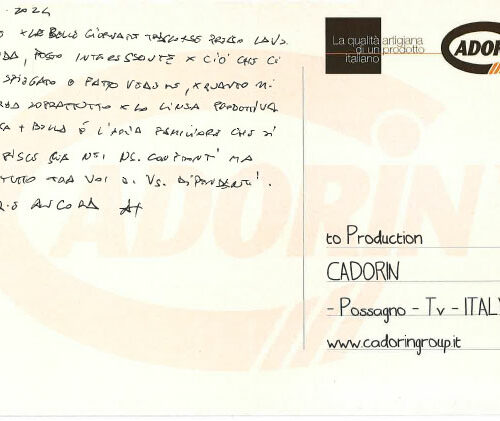 2024
X LE BELLE GIORNATE TRASCORSE PRESSO LA VS.
DA, POSTO INTERESSANTE X CIÒ CHE CI
SPIEGATO E FATTO VEDERE, X QUANTO MI
RDA SOPRATTUTTO X LA LINEA PRODUTTIVA
SA + BELLA È L'ARIA FAMILIARE CHE SI
RISCE SIA NEI NS. CONFRONTI MA
TUTTO TRA VOI E VS. DIPENDENTI.
ANCORA
La qualità artigiana
di un prodotto
italiano
ADOR
ADORIN
to Production
CADORIN
- Possagno - Tv - ITALY
www.cadoringroup.it